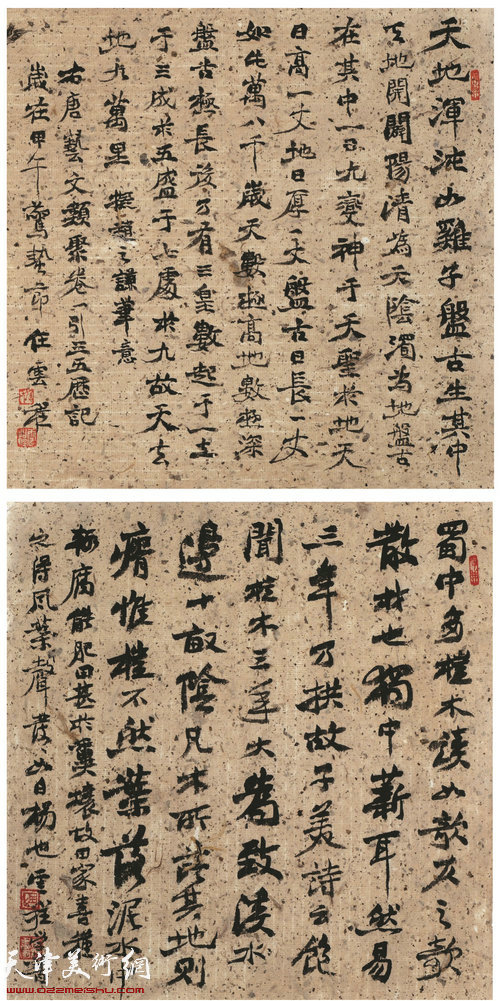 天地渾沌如雞子盤古生其中
天地開闢陽清為天陰濁為地盤古
在其中一日九變神于天聖於地天
日高一丈地日厚一丈盤古日長一丈
如此萬八千歲天數極高地數極深
盤古極長後乃有三皇數起于一立
于三成於五盛于七處於九故天去
地九萬里 擬趙之謙筆意
右唐藝文類聚卷一引三五歷記
歲在甲午驚蟄節 任雲程
蜀中多榿木讀如欹仄之欹
散材也獨中薪耳然易
三年乃拱故子美詩云飽
聞榿木三年大為致溪水
邊十畝陰凡木所芘其地則
瘠惟榿不然葉落泥水中
輒腐能肥田甚於糞壤故田家喜種
之得風葉聲發如白楊也 雲程
天津美術網
www.022meishu.com